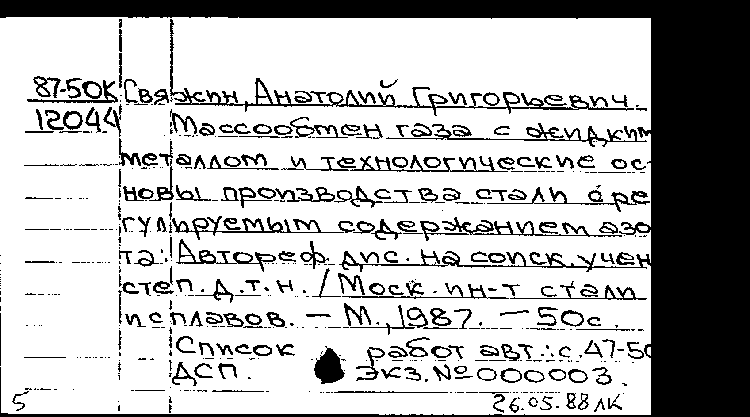 87-50К Свяжин, Анатолий Григорьевич.
12044 Массообмен газа с жидким
металлом и технологические ос-
новы производства стали с ре
гулируемым содержанием азо
та: Автореф. дис. на соиск. учен
степ. д.т.н. / Моск. ин-т стали
и сплавов. — М., 1987. — 50с.
Список работ авт.: с. 47-50
ДСП. Экз. № 000003.
5 26.05.88 ЛК